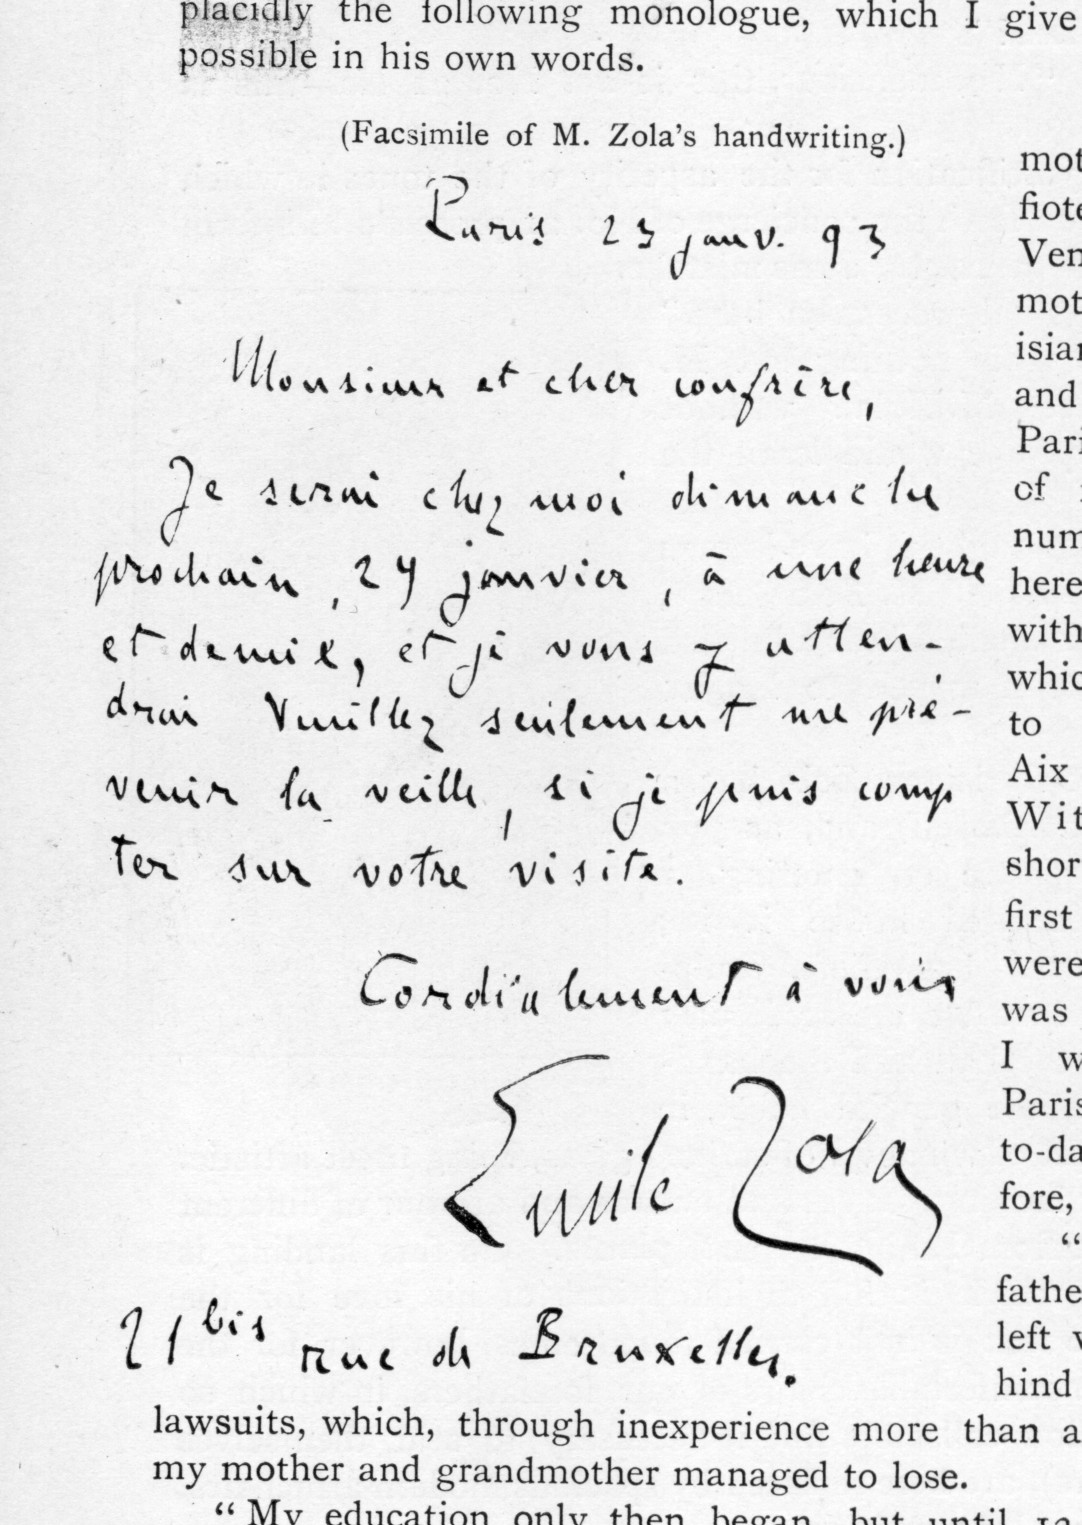 placidly the following monologue, which I give
possible in his own words.
(Facsimile of M. Zola's handwriting.)
Paris 23 janv. 93
Monsieur et cher confrère,
Je serai chez moi dimanche
prochain, 29 janvier, à une heure
et demie, et je vous y atten-
drai Veuillez seulement me pré-
venir la veille, si je puis comp
ter sur votre visite.
Cordialement à vous
Emile Zola
21 bis rue de Bruxelles.
mot
fiote
Ven
mot
isian
and
Pari
of
num
here
with
whic
to
Aix
Wit
shor
first
were
was
I w
Paris
to-da
fore,
“
fathe
left v
hind
lawsuits, which, through inexperience more than a
my mother and grandmother managed to lose.
“ My education only then began, but until 12